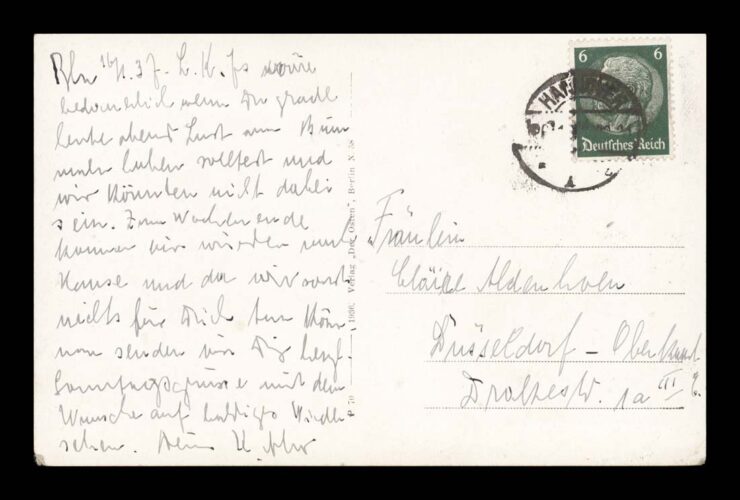 Bln 16/1. 37. L. K. Es wäre
bedauerlich wenn Du grade
heute abend Lust zum
haben solltest und
wir könnten nicht dabei
sein. Zum Wochenende
kommen wir wieder nach
Hause und da wir sonst
nichts für Dich tun kön-
nen senden wir Dir herzl.
Sonntagsgrüsse mit dem
Wunsche auf baldiges Wieder-
sehen. Dein
P 70 1936, Verlag „Der Osten", Berlin
HANNOVER
6 6
Deutsches Reich
Fräulein
Cläire Aldenhoven
Düsseldorf - Oberkassel
Drakestr. 1a III E.